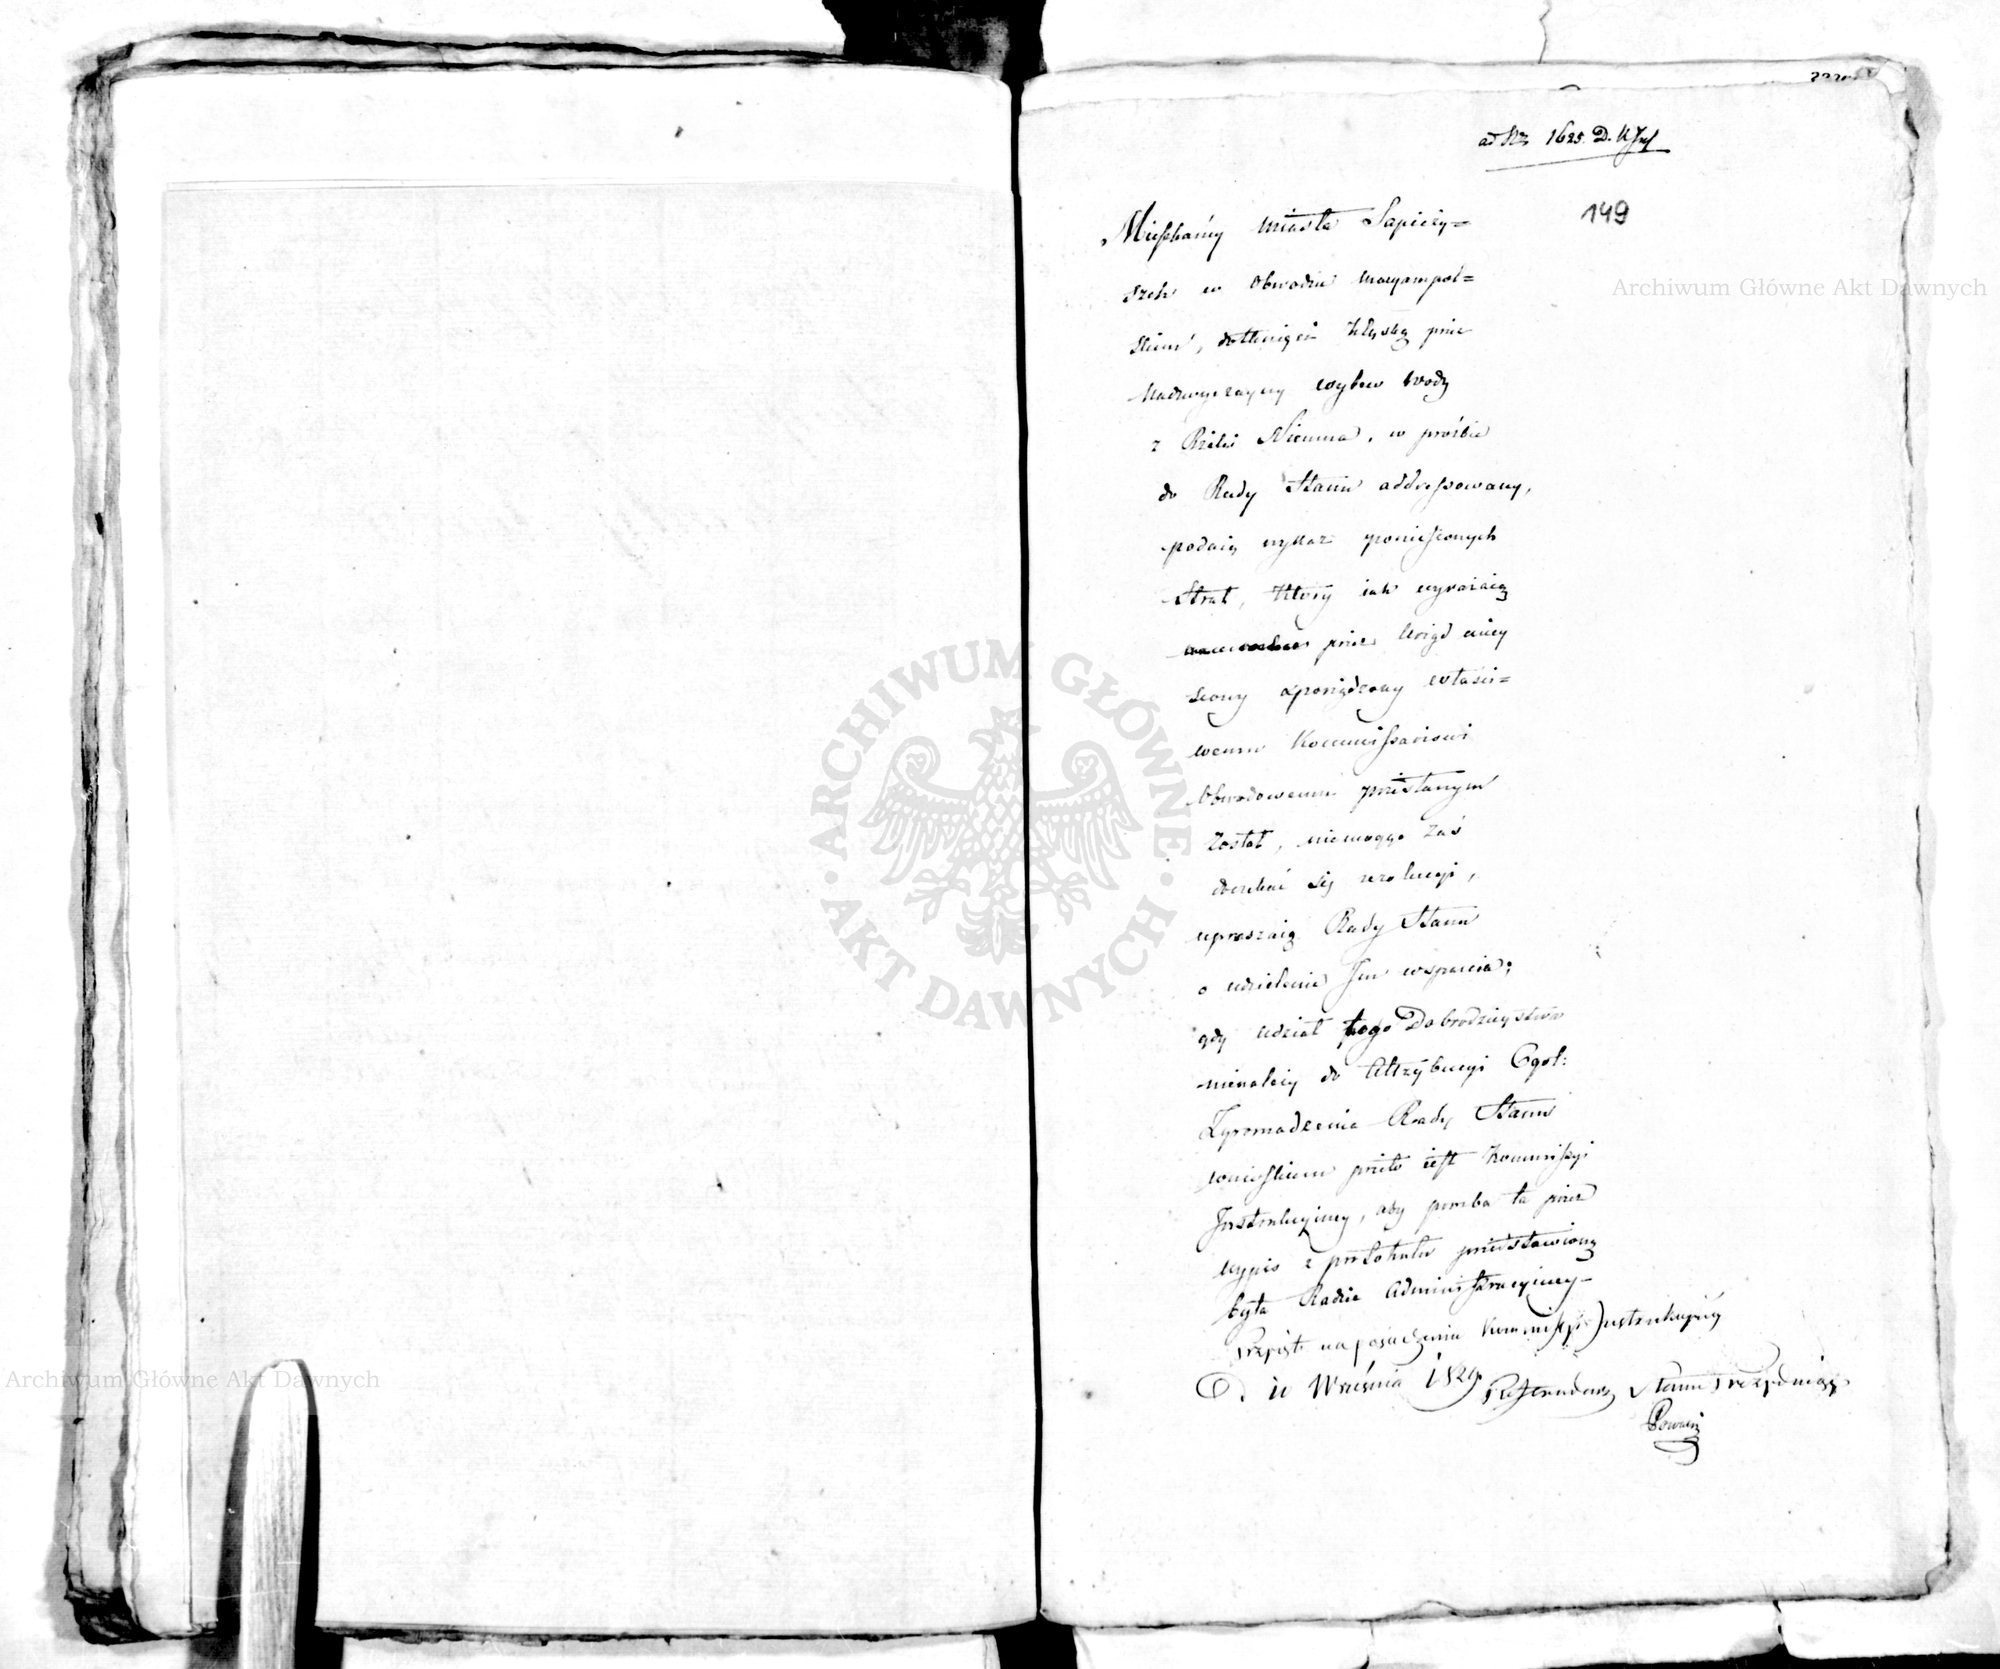 ad Nr 1625. D. K Jnst
149
Mieszkańcy miasta Sapieży=
szek w Obwodzie Maryampol=
skim, dotknięci klęską przez
Nadzwyczayny wylew wody
z Rzeki Niemna, w proźbie
do Rady Stanu addressowaney,
podaią wykaz poniesionych
Strat, który iak wyrażaią
przez Urząd miey
scowy sporządzony właści=
wemu Kommissarzowi
Obwodowemu przesłanym
został, niemogąc zaś
doczekać się rezolucyi,
upraszaią Rady Stanu
o udzielenie Jm wsparcia;
gdy udział tego Dobrodzieystwa
nienależy do Attrybucyi Ogół:
Zgromadzenia Rady Stanu
wnioskiem przeto iest Kommissyi
Jnstrukcyiney, aby prozba ta przez
wypis z protokułu przedstawioną
była Radzie Administracyiney –
Przyięto na posiedzeniu Kommissyi Jnstrukcyiney
D. 10 Września 1829. Referendarz Stanu Prezyduiący
ARCHIWUM GŁÓWNE AKT DAWNYCH
Archiwum Główne Akt Dawnych
Archiwum Główne Akt Dawnych